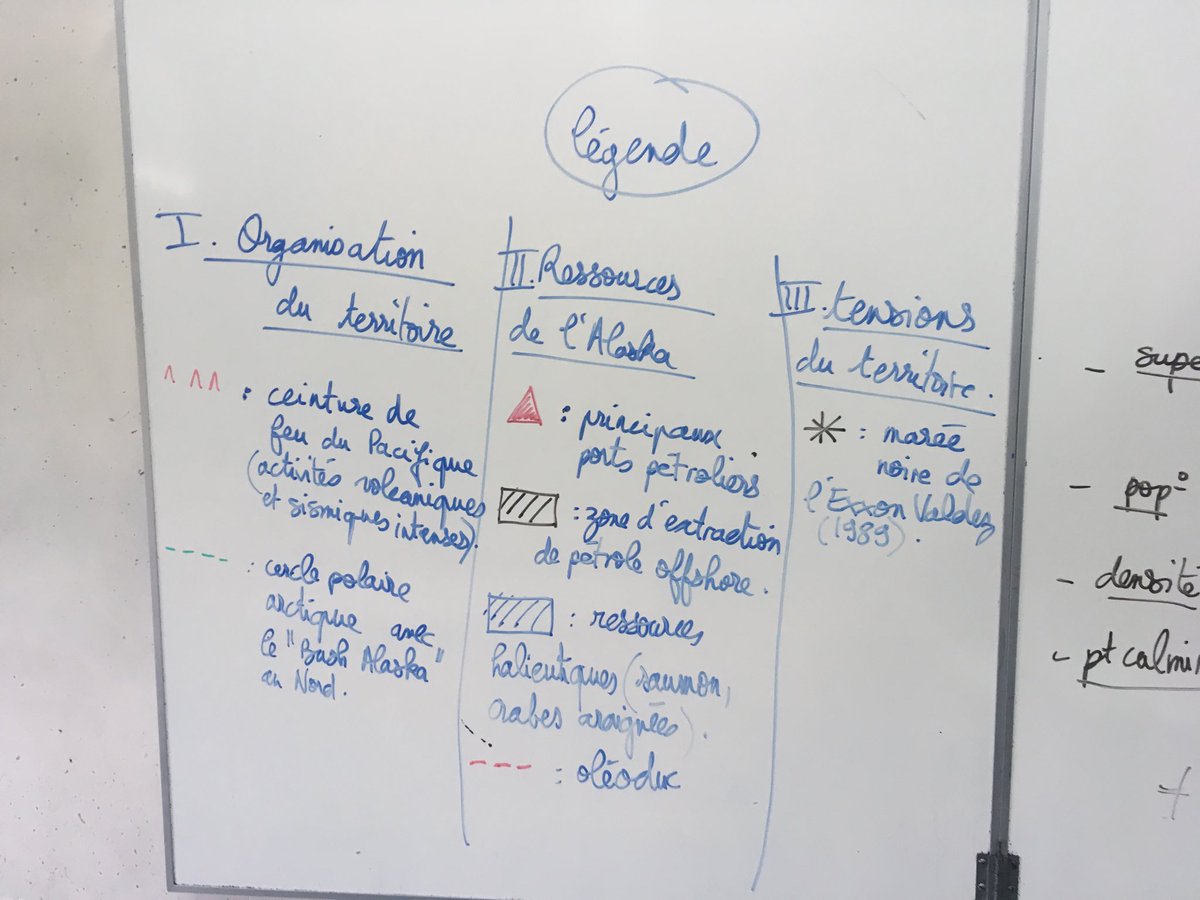 légende
I. Organisation
du territoire
: ceinture de
feu du Pacifique
(activités volcaniques
et sismiques intenses).
: cercle polaire
arctique avec
le "Bush Alaska"
au Nord.
II. Ressources
de l'Alaska
: principaux
ports pétroliers
: zone d'extraction
de pétrole offshore.
: ressources
halieutiques (saumon,
crabes araignées).
: oléoduc
III. tensions
du territoire.
: marée
noire de
l'Exxon Valdez
(1989).
- supe
- pop°
- densité
- pt culmi
+